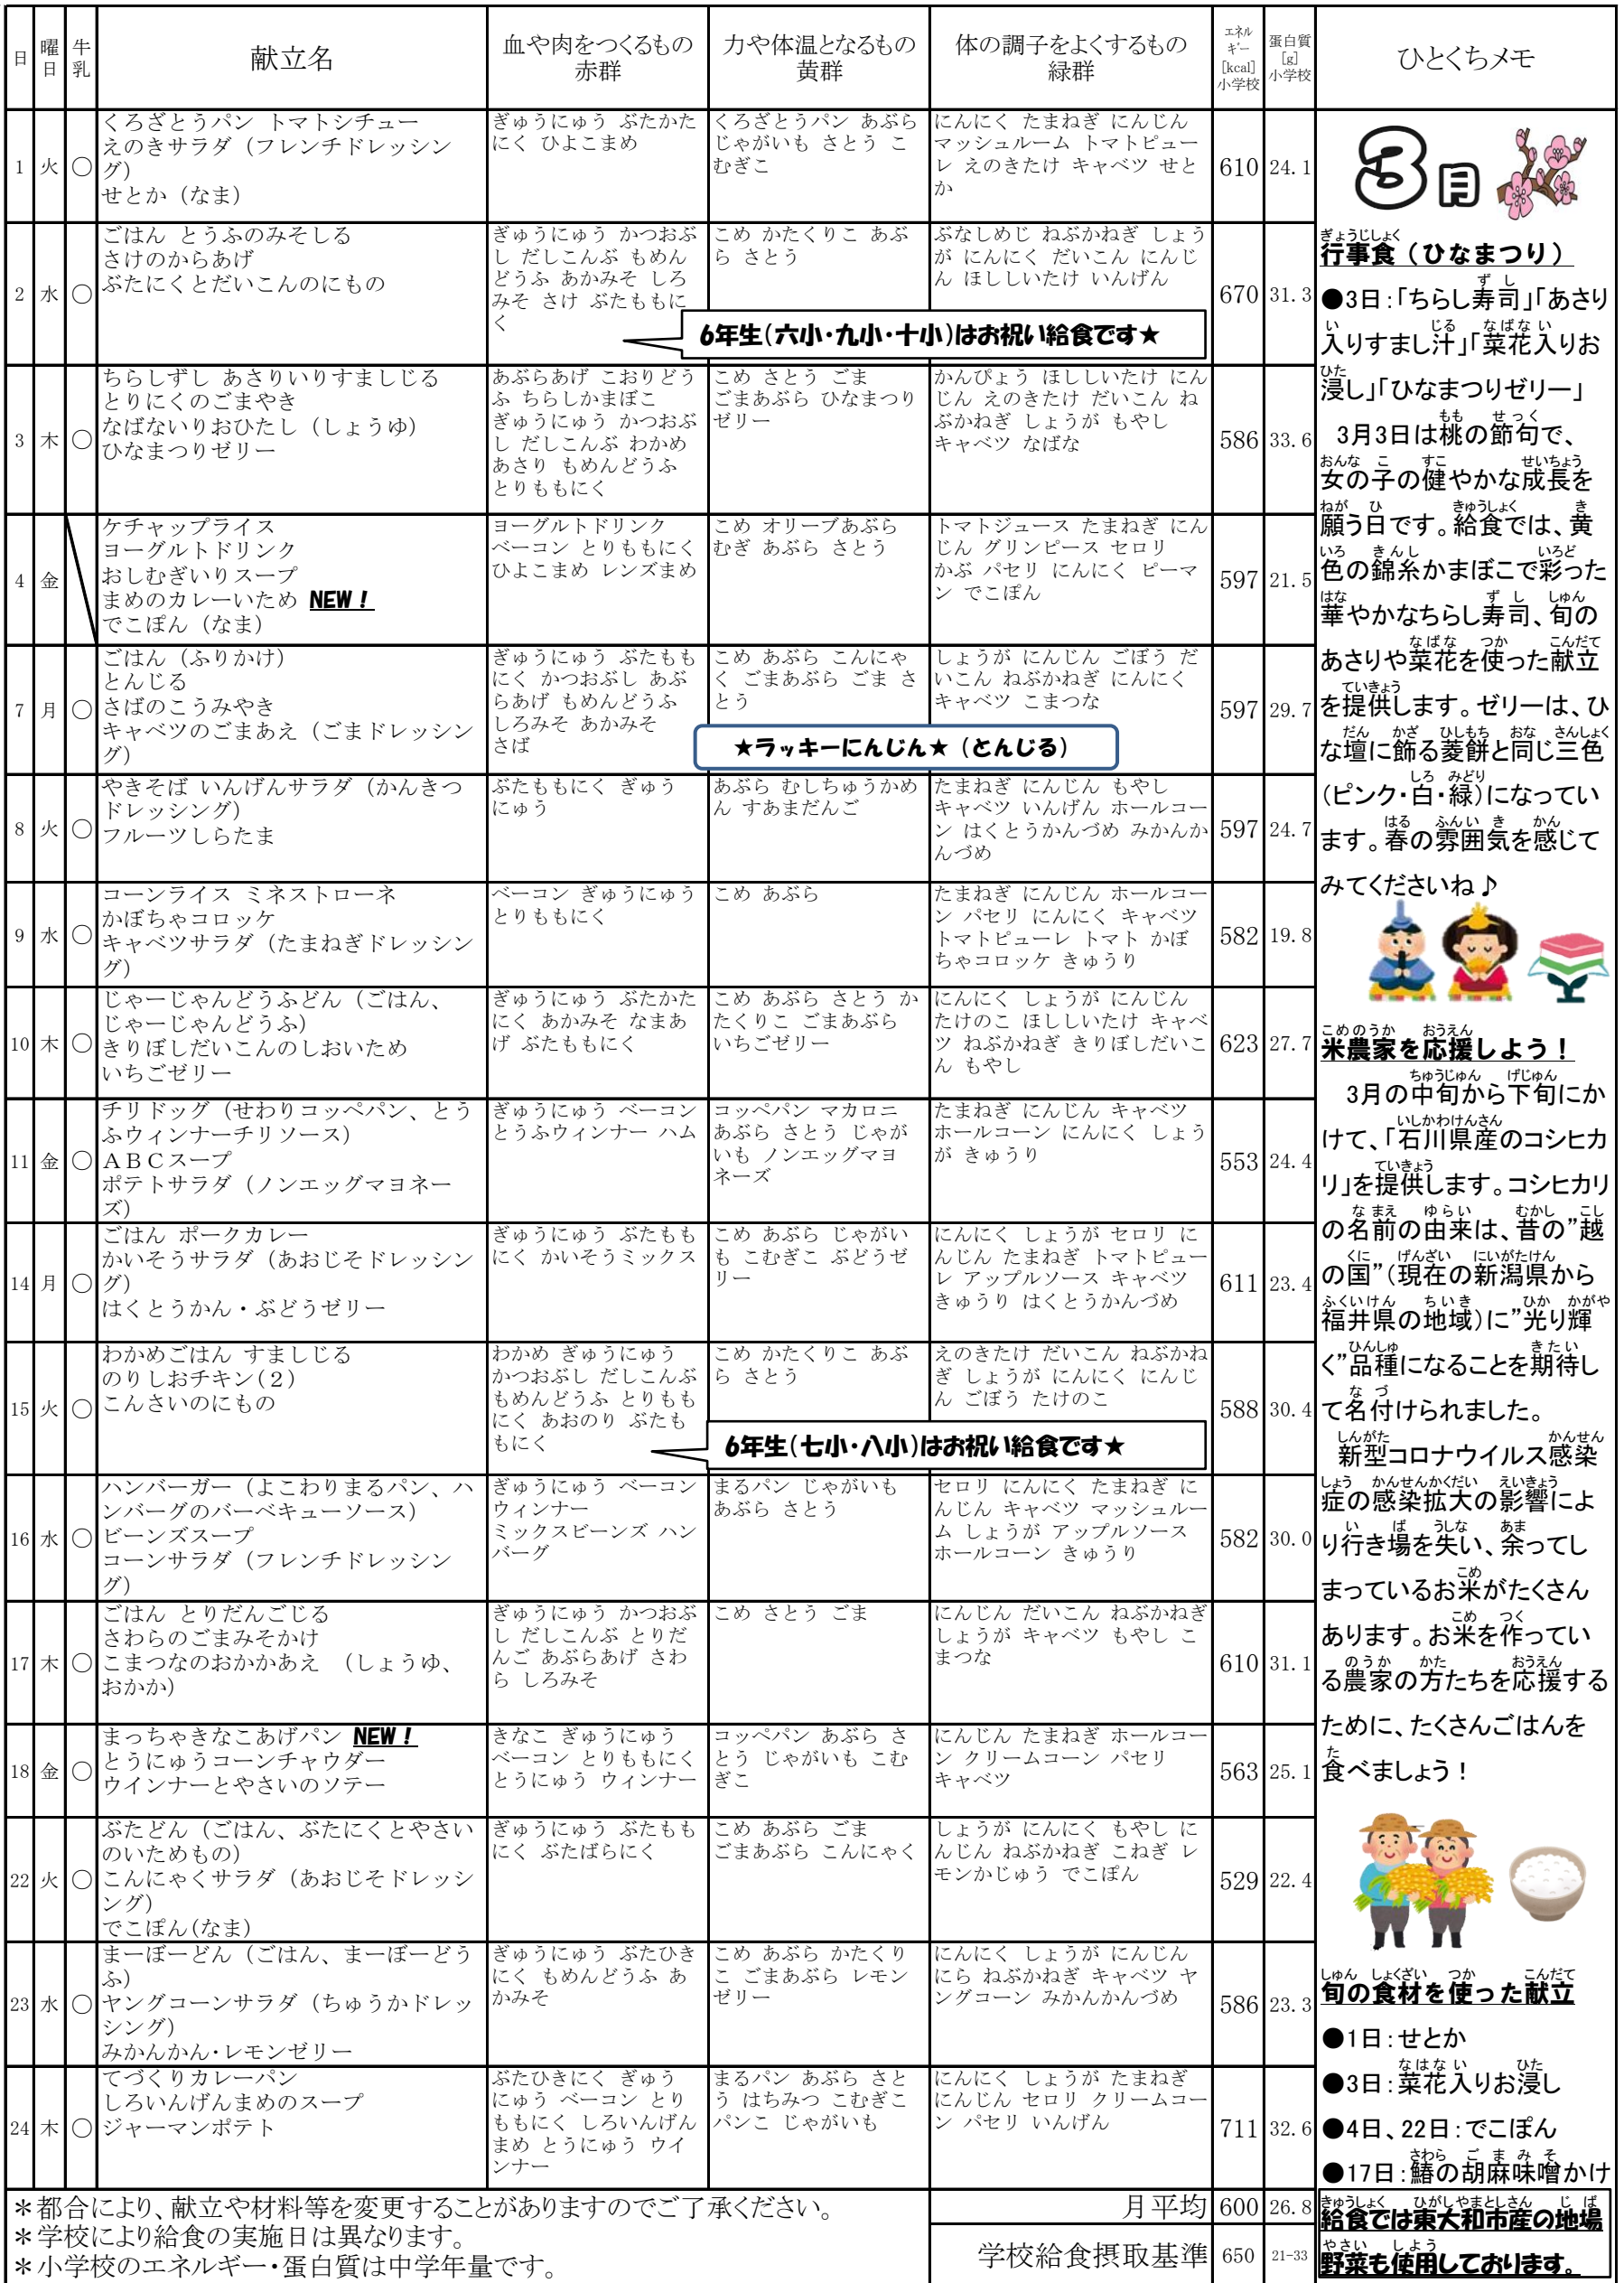 日 曜日 牛乳 献立名 血や肉をつくるもの 赤群 力や体温となるもの 黄群 体の調子をよくするもの 緑群 エネルギー [kcal] 小学校 蛋白質 [g] 小学校 ひとくちメモ
1 火 ○
くろざとうパン トマトシチュー
えのきサラダ（フレンチドレッシン
グ）
せとか（なま）
ぎゅうにゅう ぶたかた
にく ひよこまめ
くろざとうパン あぶら
じゃがいも さとう こ
むぎこ
にんにく たまねぎ にんじん
マッシュルーム トマトピュー
レ えのきたけ キャベツ せと
か
610 24.1
2 水 ○
ごはん とうふのみそしる
さけのからあげ
ぶたにくとだいこんのにもの
ぎゅうにゅう かつおぶ
し だしこんぶ もめん
どうふ あかみそ しろ
みそ さけ ぶたももに
く
こめ かたくりこ あぶ
ら さとう
ぶなしめじ ねぶかねぎ しょう
が にんにく だいこん にんじ
ん ほししいたけ いんげん
670 31.3
6年生（六小・九小・十小）はお祝い給食です★
3 木 ○
ちらしずし あさりいりすましじる
とりにくのごまやき
なばないりおひたし（しょうゆ）
ひなまつりゼリー
あぶらあげ こおりどう
ふ ちらしかまぼこ
ぎゅうにゅう かつおぶ
し だしこんぶ わかめ
あさり もめんどうふ
とりももにく
こめ さとう ごま
ごまあぶら ひなまつり
ゼリー
かんぴょう ほししいたけ にん
じん えのきたけ だいこん ね
ぶかねぎ しょうが もやし
キャベツ なばな
586 33.6
4 金
ケチャップライス
ヨーグルトドリンク
おしむぎいりスープ
まめのカレーいため NEW！
でこぽん（なま）
ヨーグルトドリンク
ベーコン とりももにく
ひよこまめ レンズまめ
こめ オリーブあぶら
むぎ あぶら さとう
トマトジュース たまねぎ にん
じん グリンピース セロリ
かぶ パセリ にんにく ピーマ
ン でこぽん
597 21.5
7 月 ○
ごはん（ふりかけ）
とんじる
さばのこうみやき
キャベツのごまあえ（ごまドレッシン
グ）
ぎゅうにゅう ぶたもも
にく かつおぶし あぶ
らあげ もめんどうふ
しろみそ あかみそ
さば
こめ あぶら こんにゃ
く ごまあぶら ごま さ
とう
しょうが にんじん ごぼう だ
いこん ねぶかねぎ にんにく
キャベツ こまつな
597 29.7
★ラッキーにんじん★（とんじる）
8 火 ○
やきそば いんげんサラダ（かんきつ
ドレッシング）
フルーツしらたま
ぶたももにく ぎゅう
にゅう
あぶら むしちゅうかめ
ん すあまだんご
たまねぎ にんじん もやし
キャベツ いんげん ホールコー
ン はくとうかんづめ みかんか
んづめ
597 24.7
9 水 ○
コーンライス ミネストローネ
かぼちゃコロッケ
キャベツサラダ（たまねぎドレッシン
グ）
ベーコン ぎゅうにゅう
とりももにく
こめ あぶら
たまねぎ にんじん ホールコー
ン パセリ にんにく キャベツ
トマトピューレ トマト かぼ
ちゃコロッケ きゅうり
582 19.8
10 木 ○
じゃーじゃんどうふどん（ごはん、
じゃーじゃんどうふ）
きりぼしだいこんのしおいため
いちごゼリー
ぎゅうにゅう ぶたかた
にく あかみそ なまあ
げ ぶたももにく
こめ あぶら さとう か
たくりこ ごまあぶら
いちごゼリー
にんにく しょうが にんじん
たけのこ ほししいたけ キャベ
ツ ねぶかねぎ きりぼしだいこ
ん もやし
623 27.7
11 金 ○
チリドッグ（せわりコッペパン、とう
ふウィンナーチリソース）
ＡＢＣスープ
ポテトサラダ（ノンエッグマヨネー
ズ）
ぎゅうにゅう ベーコン
とうふウィンナー ハム
コッペパン マカロニ
あぶら さとう じゃが
いも ノンエッグマヨ
ネーズ
たまねぎ にんじん キャベツ
ホールコーン にんにく しょう
が きゅうり
553 24.4
14 月 ○
ごはん ポークカレー
かいそうサラダ（あおじそドレッシン
グ）
はくとうかん・ぶどうゼリー
ぎゅうにゅう ぶたもも
にく かいそうミックス
こめ あぶら じゃがい
も こむぎこ ぶどうゼ
リー
にんにく しょうが セロリ に
んじん たまねぎ トマトピュー
レ アップルソース キャベツ
きゅうり はくとうかんづめ
611 23.4
15 火 ○
わかめごはん すましじる
のりしおチキン(２)
こんさいのにもの
わかめ ぎゅうにゅう
かつおぶし だしこんぶ
もめんどうふ とりもも
にく あおのり ぶたも
もにく
こめ かたくりこ あぶ
ら さとう
えのきたけ だいこん ねぶかね
ぎ しょうが にんにく にんじ
ん ごぼう たけのこ
588 30.4
6年生（七小・八小）はお祝い給食です★
16 水 ○
ハンバーガー（よこわりまるパン、ハ
ンバーグのバーベキューソース）
ビーンズスープ
コーンサラダ（フレンチドレッシン
グ）
ぎゅうにゅう ベーコン
ウィンナー
ミックスビーンズ ハン
バーグ
まるパン じゃがいも
あぶら さとう
セロリ にんにく たまねぎ に
んじん キャベツ マッシュルー
ム しょうが アップルソース
ホールコーン きゅうり
582 30.0
17 木 ○
ごはん とりだんごじる
さわらのごまみそかけ
こまつなのおかかあえ （しょうゆ、
おかか）
ぎゅうにゅう かつおぶ
し だしこんぶ とりだ
んご あぶらあげ さわ
ら しろみそ
こめ さとう ごま
にんじん だいこん ねぶかねぎ
しょうが キャベツ もやし こ
まつな
610 31.1
18 金 ○
まっちゃきなこあげパン NEW！
とうにゅうコーンチャウダー
ウインナーとやさいのソテー
きなこ ぎゅうにゅう
ベーコン とりももにく
とうにゅう ウィンナー
コッペパン あぶら さ
とう じゃがいも こむ
ぎこ
にんじん たまねぎ ホールコー
ン クリームコーン パセリ
キャベツ
563 25.1
22 火 ○
ぶたどん（ごはん、ぶたにくとやさい
のいためもの）
こんにゃくサラダ（あおじそドレッシ
ング）
でこぽん(なま)
ぎゅうにゅう ぶたもも
にく ぶたばらにく
こめ あぶら ごま
ごまあぶら こんにゃく
しょうが にんにく もやし に
んじん ねぶかねぎ こねぎ レ
モンかじゅう でこぽん
529 22.4
23 水 ○
まーぼーどん（ごはん、まーぼーどう
ふ）
ヤングコーンサラダ（ちゅうかドレッ
シング）
みかんかん・レモンゼリー
ぎゅうにゅう ぶたひき
にく もめんどうふ あ
かみそ
こめ あぶら かたくり
こ ごまあぶら レモン
ゼリー
にんにく しょうが にんじん
にら ねぶかねぎ キャベツ ヤ
ングコーン みかんかんづめ
586 23.3
24 木 ○
てづくりカレーパン
しろいんげんまめのスープ
ジャーマンポテト
ぶたひきにく ぎゅう
にゅう ベーコン とり
ももにく しろいんげん
まめ とうにゅう ウイ
ンナー
まるパン あぶら さと
う はちみつ こむぎこ
パンこ じゃがいも
にんにく しょうが たまねぎ
にんじん セロリ クリームコー
ン パセリ いんげん
711 32.6
＊都合により、献立や材料等を変更することがありますのでご了承ください。
＊学校により給食の実施日は異なります。
＊小学校のエネルギー・蛋白質は中学年量です。
月平均 600 26.8
学校給食摂取基準 650 21-33
3月
ぎょうじしょく
行事食（ひなまつり）
ず し
●3日：「ちらし寿司」「あさり
い じる なばな い
入りすまし汁」「菜花入りお
ひた
浸し」「ひなまつりゼリー」
もも せっく
3月3日は桃の節句で、
おんな こ すこ せいちょう
女の子の健やかな成長を
ねが ひ きゅうしょく き
願う日です。給食では、黄
いろ きんし いろど
色の錦糸かまぼこで彩った
はな ず し しゅん
華やかなちらし寿司、旬の
なばな つか こんだて
あさりや菜花を使った献立
ていきょう
を提供します。ゼリーは、ひ
だん かざ ひしもち おな さんしょく
な壇に飾る菱餅と同じ三色
しろ みどり
（ピンク・白・緑）になってい
はる ふんい き かん
ます。春の雰囲気を感じて
みてくださいね♪
こめのうか おうえん
米農家を応援しよう！
ちゅうじゅん げじゅん
3月の中旬から下旬にか
いしかわけんさん
けて、「石川県産のコシヒカ
ていきょう
リ」を提供します。コシヒカリ
な まえ ゆらい むかし こし
の名前の由来は、昔の”越
くに げんざい にいがたけん
の国”（現在の新潟県から
ふくいけん ちいき ひか かがや
福井県の地域）に”光り輝
ひんしゅ きたい
く”品種になることを期待し
な づ
て名付けられました。
しんがた かんせん
新型コロナウイルス感染
しょう かんせんかくだい えいきょう
症の感染拡大の影響によ
い ば うしな あま
り行き場を失い、余ってし
こめ
まっているお米がたくさん
こめ つく
あります。お米を作ってい
のうか かた おうえん
る農家の方たちを応援する
ために、たくさんごはんを
た
食べましょう！
しゅん しょくざい つか こんだて
旬の食材を使った献立
●1日：せとか
なはな い ひた
●3日：菜花入りお浸し
●4日、22日：でこぽん
さわら ご ま み そ
●17日：鰆の胡麻味噌かけ
きゅうしょく ひがしやまとしさん じ ば
給食では東大和市産の地場
やさい しよう
野菜も使用しております。